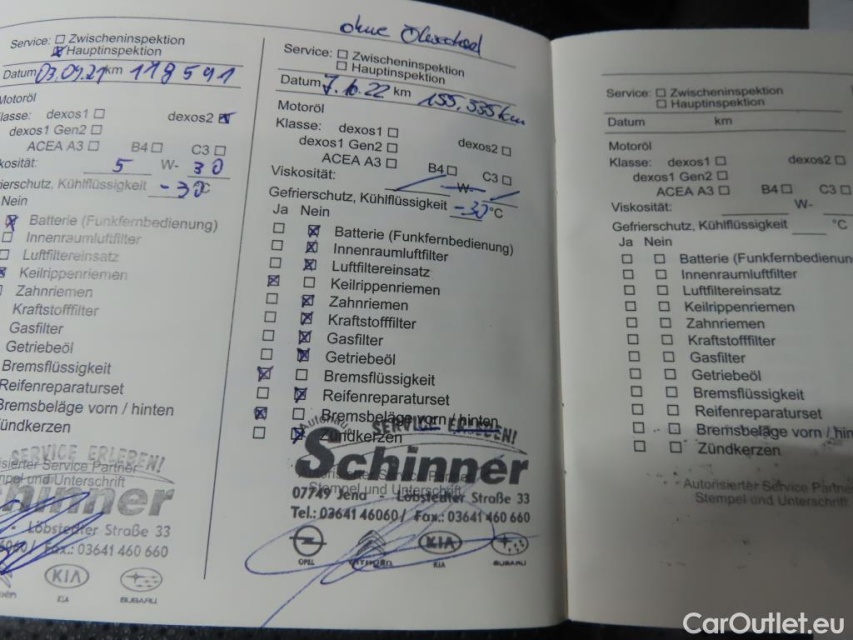 Service: Zwischeninspektion
Hauptinspektion
Datum 03.09.21 km 118591
Motoröl
Klasse: dexos1 dexos2
dexos1 Gen2
ACEA A3 B4 C3
kosität: 5 W- 30
ierschutz, Kühlflüssigkeit -30°
Nein
Batterie (Funkfernbedienung)
Innenraumluftfilter
Luftfiltereinsatz
Keilrippenriemen
Zahnriemen
Kraftstofffilter
Gasfilter
Getriebeöl
Bremsflüssigkeit
Reifenreparaturset
Bremsbeläge vorn / hinten
Zündkerzen
SERVICE ERLEBEN!
Service Partner
Unterschrift
Löbstedter Straße 33
Fax.: 03641 460 660
KIA
KIA
SUBARU
ohne Ölwechsel
Service: Zwischeninspektion
Hauptinspektion
Datum 7.6.22 km 155.335km
Motoröl
Klasse: dexos1
dexos1 Gen2 dexos2
ACEA A3 B4 C3
Viskosität: W-
Gefrierschutz, Kühlflüssigkeit -30°C
Ja Nein
Batterie (Funkfernbedienung)
Innenraumluftfilter
Luftfiltereinsatz
Keilrippenriemen
Zahnriemen
Kraftstofffilter
Gasfilter
Getriebeöl
Bremsflüssigkeit
Reifenreparaturset
Bremsbeläge vorn / hinten
Zündkerzen
Autohaus SERVICE ERLEBEN!
Schinner
Service Partner
Stempel und Unterschrift
07749 Jena - Löbstedter Straße 33
Tel.: 03641 46060 / Fax.: 03641 460 660
OPEL
KIA
KIA
SUBARU
Service: Zwischeninspektion
Hauptinspektion
Datum km
Motoröl
Klasse: dexos1 dexos2
dexos1 Gen2
ACEA A3 B4 C3
Viskosität: W-
Gefrierschutz, Kühlflüssigkeit °C
Ja Nein
Batterie (Funkfernbedienun
Innenraumluftfilter
Luftfiltereinsatz
Keilrippenriemen
Zahnriemen
Kraftstofffilter
Gasfilter
Getriebeöl
Bremsflüssigkeit
Reifenreparaturset
Bremsbeläge vorn / hin
Zündkerzen
Autorisierter Service Partne
Stempel und Unterschrift
CarOutlet.eu